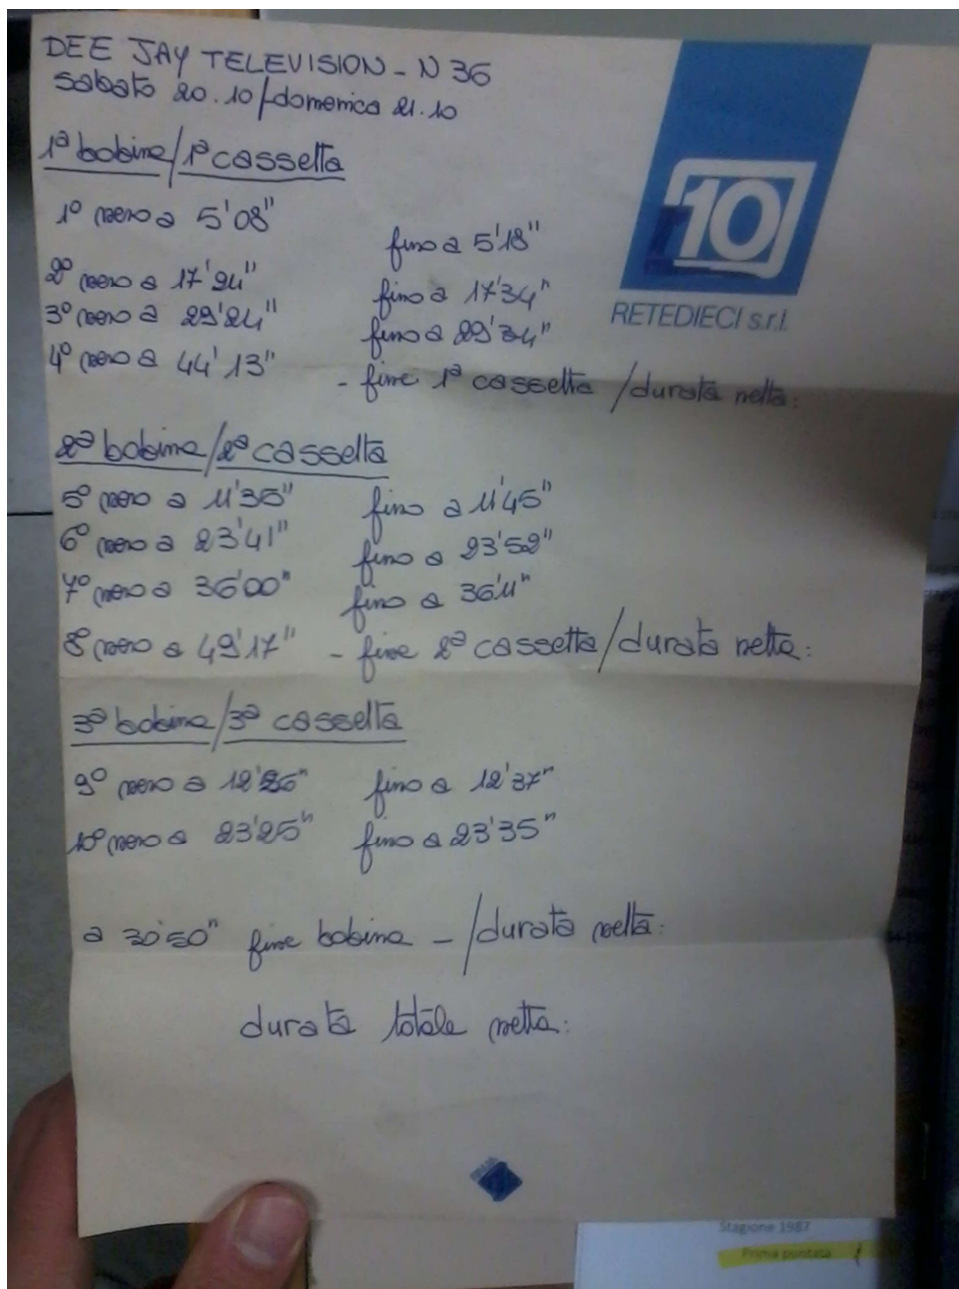 DEE JAY TELEVISION - N 36
sabato 20.10/domenica 21.10
1ª bobina/1ª cassetta
1º nero a 5'08" fino a 5'18"
2º nero a 17'24" fino a 17'34"
3º nero a 29'24" fino a 29'34"
4º nero a 44'13" - fine 1ª cassetta /durata netta:
2ª bobina/2ª cassetta
5º nero a 11'35" fino a 11'45"
6º nero a 23'41" fino a 23'52"
7º nero a 36'00" fino a 36'11"
8º nero a 49'17" - fine 2ª cassetta/durata netta:
3ª bobina/3ª cassetta
9º nero a 12'26" fino a 12'37"
10º nero a 23'25" fino a 23'35"
a 30'50" fine bobina - /durata netta:
durata totale netta:
10
RETEDIECI s.r.l.
Stagione 1987
Prima puntata